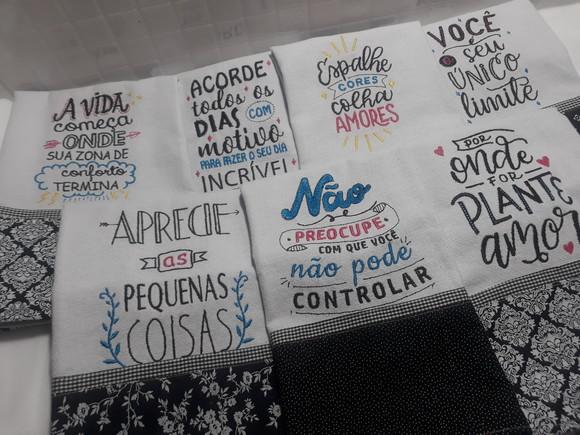 A VIDA
começa
ONDE
SUA ZONA DE
conforto
TERMINA
ACORDE
todos os
DIAS COM
motivo
PARA FAZER O SEU DIA
INCRÍVEl
Espalhe
CORES
colha
AMORES
VOCÊ
é o seu
ÚNICO
limite
APRECIE
as
PEQUENAS
COISAS
Não
se
PREOCUPE
COM QUE VOCÊ
não pode
CONTROLAR
POR
onde
FOR
PLANTE
amor